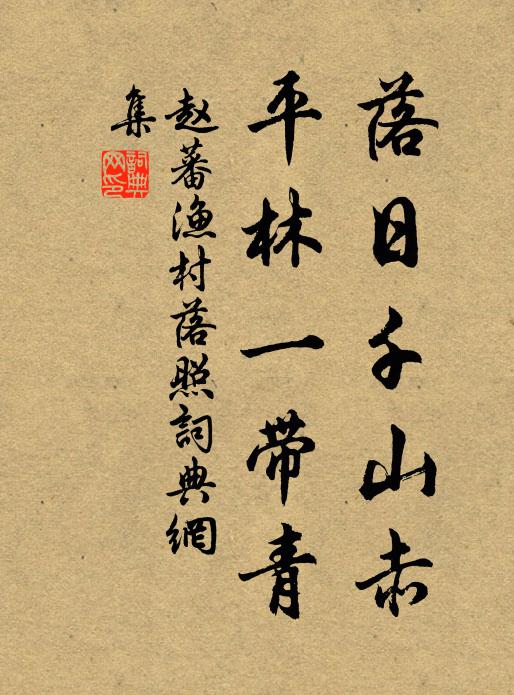 落日千山赤
平林一带青
赵蕃漁村落照詞典網
集
詞典
网印